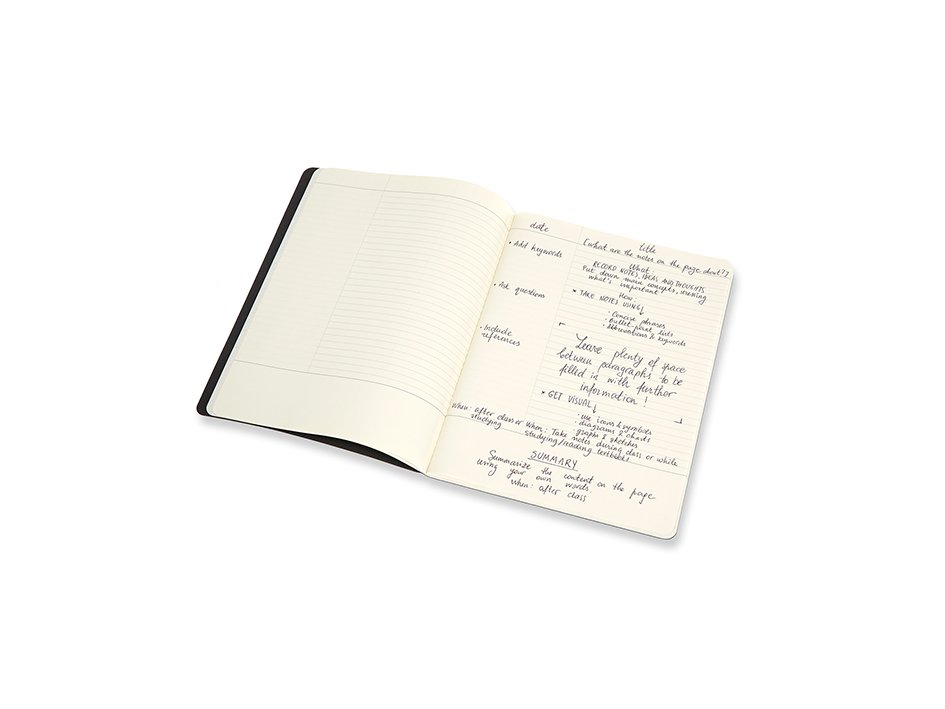 date
title
[what are the notes on the page about?]
• Add keywords
• Ask questions
• Include
references
When: after class or
studying
What:
RECORD NOTES, IDEAS AND THOUGHTS
Put down main concepts, stressing
what's important
How:
* TAKE NOTES USING↓
• Concise phrases
• Bullet-point lists
• Abbreviations & keywords
Leave plenty of space
between paragraphs to be
filled in with further
information!
* GET VISUAL↓
• use icons & symbols
• diagrams & charts
• graphs & sketches
When: Take notes during class or while
studying/reading textbooks!
SUMMARY
Summarize the content on the page
using your own words.
When: after class